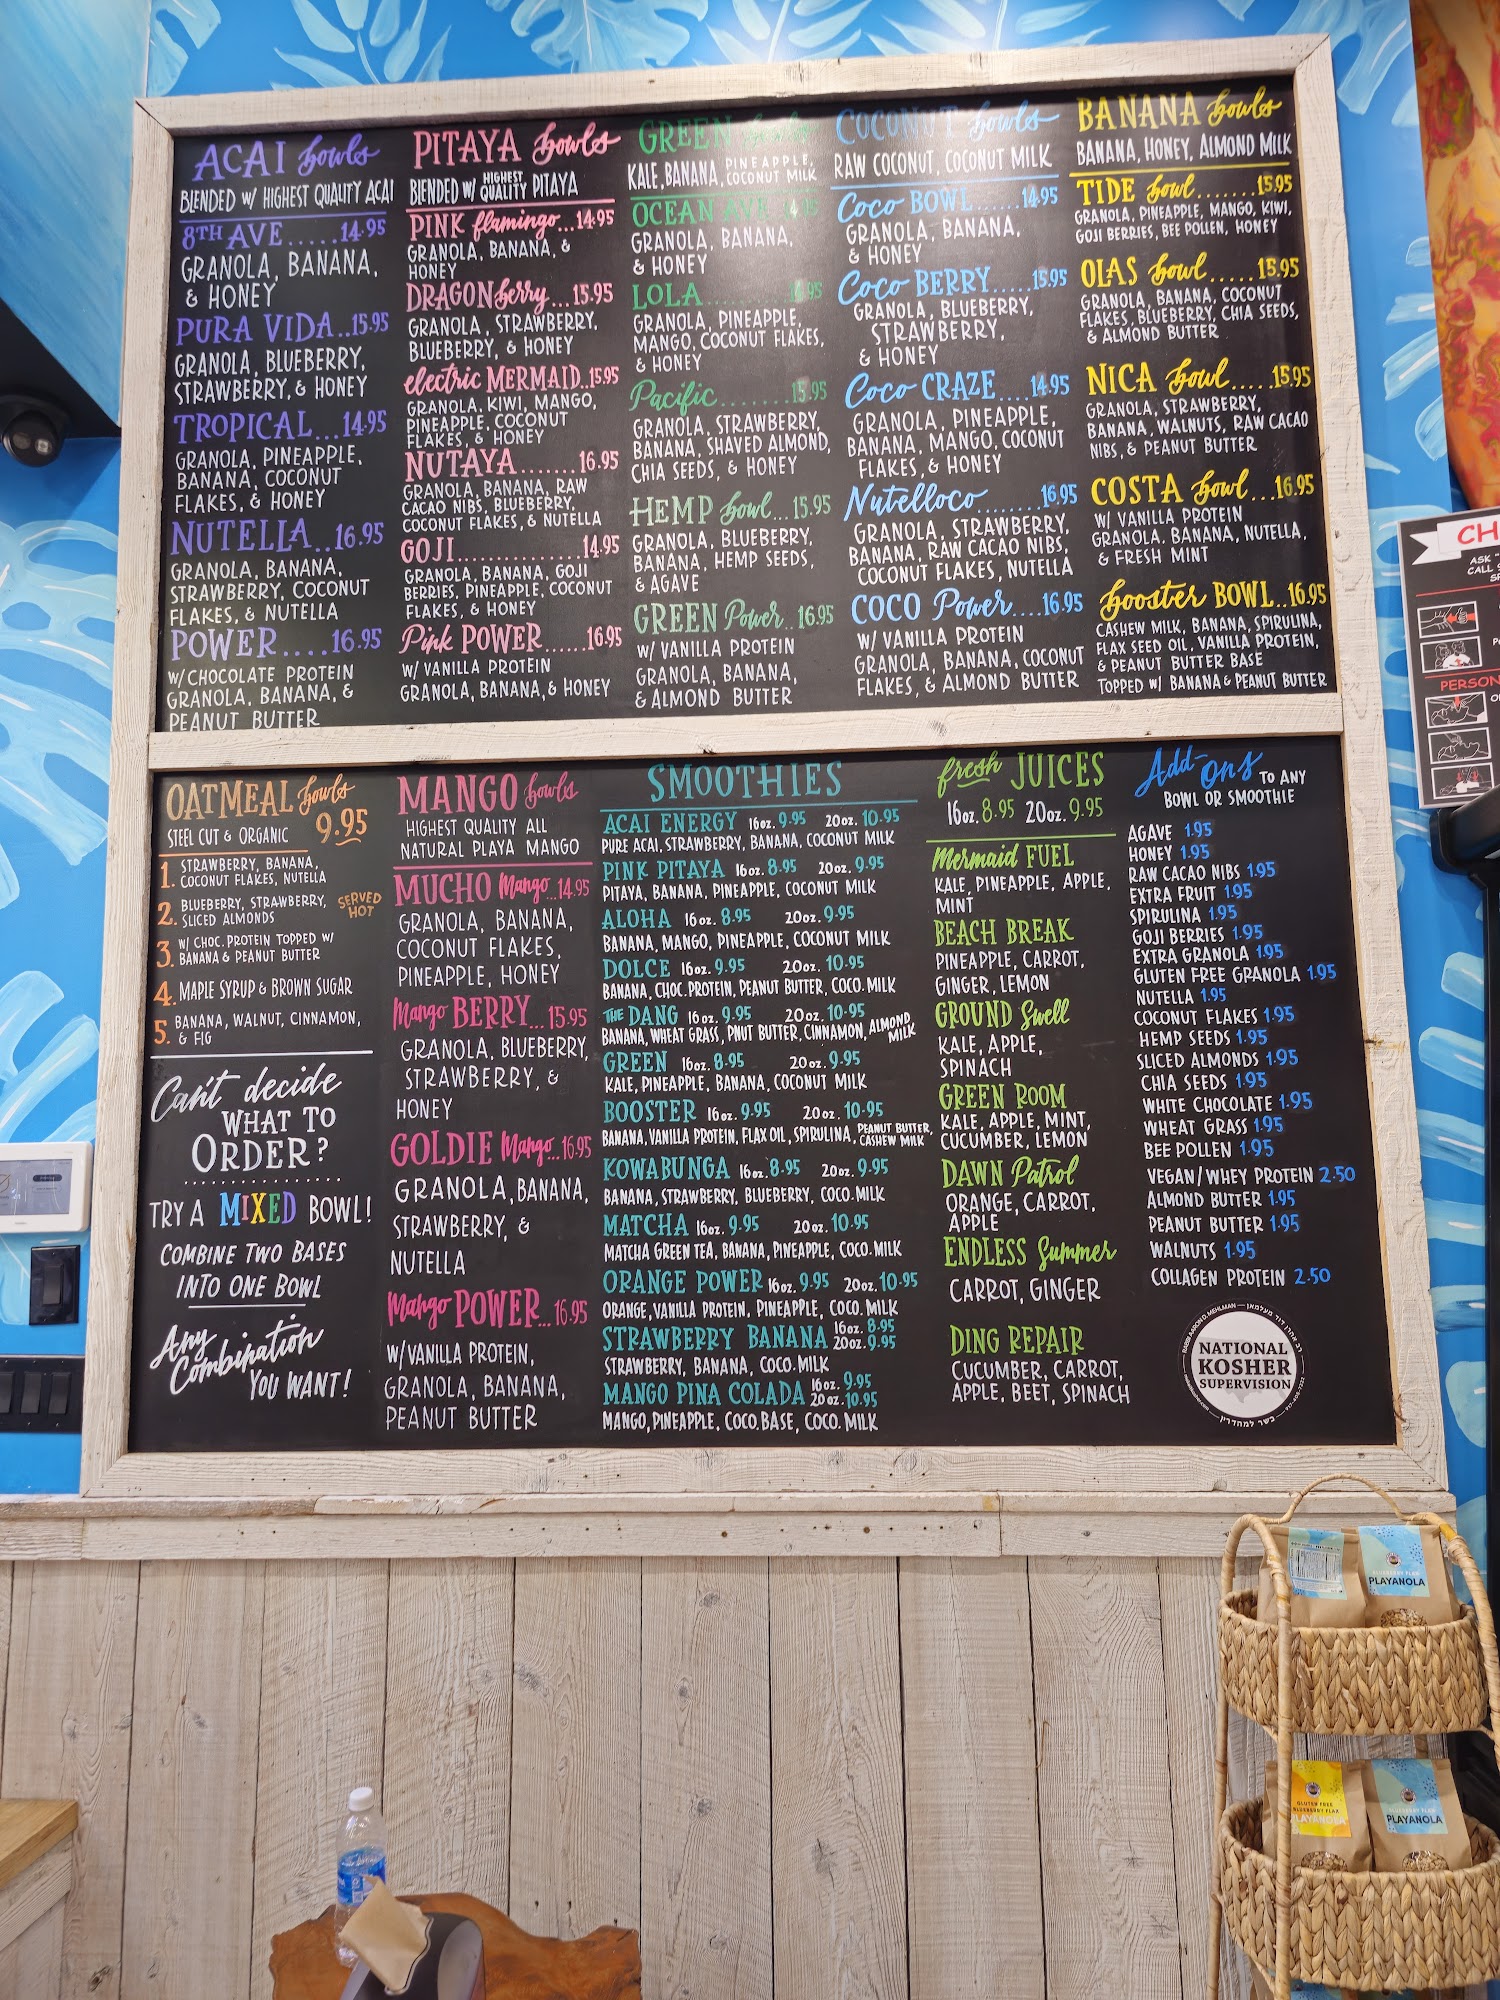 ACAI bowls
BLENDED W/ HIGHEST QUALITY ACAI
8TH AVE.....14.95
GRANOLA, BANANA,
& HONEY
PURA VIDA..15.95
GRANOLA, BLUEBERRY,
STRAWBERRY, & HONEY
TROPICAL...14.95
GRANOLA, PINEAPPLE,
BANANA, COCONUT
FLAKES, & HONEY
NUTELLA..16.95
GRANOLA, BANANA,
STRAWBERRY, COCONUT
FLAKES, & NUTELLA
POWER....16.95
W/ CHOCOLATE PROTEIN
GRANOLA, BANANA, &
PEANUT BUTTER
PITAYA bowls
BLENDED W/ HIGHEST QUALITY PITAYA
PINK flamingo...14.95
GRANOLA, BANANA, &
HONEY
DRAGON berry...15.95
GRANOLA, STRAWBERRY,
BLUEBERRY, & HONEY
electric MERMAID..15.95
GRANOLA, KIWI, MANGO,
PINEAPPLE, COCONUT
FLAKES, & HONEY
NUTAYA.......16.95
GRANOLA, BANANA, RAW
CACAO NIBS, BLUEBERRY,
COCONUT FLAKES, & NUTELLA
GOJI...............14.95
GRANOLA, BANANA, GOJI
BERRIES, PINEAPPLE, COCONUT
FLAKES, & HONEY
Pink POWER......16.95
W/ VANILLA PROTEIN
GRANOLA, BANANA, & HONEY
GREEN bowls
KALE, BANANA, PINEAPPLE, COCONUT MILK
OCEAN AVE
GRANOLA, BANANA,
& HONEY
LOLA
GRANOLA, PINEAPPLE,
MANGO, COCONUT FLAKES,
& HONEY
Pacific........15.95
GRANOLA, STRAWBERRY,
BANANA, SHAVED ALMOND,
CHIA SEEDS, & HONEY
HEMP bowl...15.95
GRANOLA, BLUEBERRY,
BANANA, HEMP SEEDS,
& AGAVE
GREEN Power..16.95
W/ VANILLA PROTEIN
GRANOLA, BANANA,
& ALMOND BUTTER
COCONUT bowls
RAW COCONUT, COCONUT MILK
Coco BOWL.....14.95
GRANOLA, BANANA,
& HONEY
Coco BERRY.....15.95
GRANOLA, BLUEBERRY,
STRAWBERRY,
& HONEY
Coco CRAZE....14.95
GRANOLA, PINEAPPLE,
BANANA, MANGO, COCONUT
FLAKES, & HONEY
Nutelloco........16.95
GRANOLA, STRAWBERRY,
BANANA, RAW CACAO NIBS,
COCONUT FLAKES, NUTELLA
COCO Power....16.95
W/ VANILLA PROTEIN
GRANOLA, BANANA, COCONUT
FLAKES, & ALMOND BUTTER
BANANA bowls
BANANA, HONEY, ALMOND MILK
TIDE bowl........15.95
GRANOLA, PINEAPPLE, MANGO, KIWI,
GOJI BERRIES, BEE POLLEN, HONEY
OLAS bowl......15.95
GRANOLA, BANANA, COCONUT
FLAKES, BLUEBERRY, CHIA SEEDS,
& ALMOND BUTTER
NICA bowl.....15.95
GRANOLA, STRAWBERRY,
BANANA, WALNUTS, RAW CACAO
NIBS, & PEANUT BUTTER
COSTA bowl...16.95
W/ VANILLA PROTEIN
GRANOLA, BANANA, NUTELLA,
& FRESH MINT
booster BOWL..16.95
CASHEW MILK, BANANA, SPIRULINA,
FLAX SEED OIL, VANILLA PROTEIN,
& PEANUT BUTTER BASE
TOPPED W/ BANANA & PEANUT BUTTER
OATMEAL bowls
STEEL CUT & ORGANIC 9.95
1. STRAWBERRY, BANANA,
COCONUT FLAKES, NUTELLA
2. BLUEBERRY, STRAWBERRY,
SLICED ALMONDS
SERVED
HOT
3. W/ CHOC. PROTEIN TOPPED W/
BANANA & PEANUT BUTTER
4. MAPLE SYRUP & BROWN SUGAR
5. BANANA, WALNUT, CINNAMON,
& FIG
Can't decide
WHAT TO
ORDER?
TRY A MIXED BOWL!
COMBINE TWO BASES
INTO ONE BOWL
Any
Combination
YOU WANT!
MANGO bowls
HIGHEST QUALITY ALL
NATURAL PLAYA MANGO
MUCHO Mango...14.95
GRANOLA, BANANA,
COCONUT FLAKES,
PINEAPPLE, HONEY
Mango BERRY...15.95
GRANOLA, BLUEBERRY,
STRAWBERRY, &
HONEY
GOLDIE Mango...16.95
GRANOLA, BANANA,
STRAWBERRY, &
NUTELLA
Mango POWER...16.95
W/ VANILLA PROTEIN,
GRANOLA, BANANA,
PEANUT BUTTER
SMOOTHIES
ACAI ENERGY 16oz. 9.95 20oz. 10.95
PURE ACAI, STRAWBERRY, BANANA, COCONUT MILK
PINK PITAYA 16oz. 8.95 20oz. 9.95
PITAYA, BANANA, PINEAPPLE, COCONUT MILK
ALOHA 16oz. 8.95 20oz. 9.95
BANANA, MANGO, PINEAPPLE, COCONUT MILK
DOLCE 16oz. 9.95 20oz. 10.95
BANANA, CHOC. PROTEIN, PEANUT BUTTER, COCO. MILK
THE DANG 16oz. 9.95 20oz. 10.95
BANANA, WHEAT GRASS, PNUT BUTTER, CINNAMON, ALMOND MILK
GREEN 16oz. 8.95 20oz. 9.95
KALE, PINEAPPLE, BANANA, COCONUT MILK
BOOSTER 16oz. 9.95 20oz. 10.95
BANANA, VANILLA PROTEIN, FLAX OIL, SPIRULINA, PEANUT BUTTER, CASHEW MILK
KOWABUNGA 16oz. 8.95 20oz. 9.95
BANANA, STRAWBERRY, BLUEBERRY, COCO. MILK
MATCHA 16oz. 9.95 20oz. 10.95
MATCHA GREEN TEA, BANANA, PINEAPPLE, COCO. MILK
ORANGE POWER 16oz. 9.95 20oz. 10.95
ORANGE, VANILLA PROTEIN, PINEAPPLE, COCO. MILK
STRAWBERRY BANANA 16oz. 8.95 20oz. 9.95
STRAWBERRY, BANANA, COCO. MILK
MANGO PINA COLADA 16oz. 9.95 20oz. 10.95
MANGO, PINEAPPLE, COCO. BASE, COCO. MILK
fresh JUICES
16oz. 8.95 20oz. 9.95
Mermaid FUEL
KALE, PINEAPPLE, APPLE,
MINT
BEACH BREAK
PINEAPPLE, CARROT,
GINGER, LEMON
GROUND Swell
KALE, APPLE,
SPINACH
GREEN ROOM
KALE, APPLE, MINT,
CUCUMBER, LEMON
DAWN Patrol
ORANGE, CARROT,
APPLE
ENDLESS Summer
CARROT, GINGER
DING REPAIR
CUCUMBER, CARROT,
APPLE, BEET, SPINACH
Add-ons TO ANY
BOWL OR SMOOTHIE
AGAVE 1.95
HONEY 1.95
RAW CACAO NIBS 1.95
EXTRA FRUIT 1.95
SPIRULINA 1.95
GOJI BERRIES 1.95
EXTRA GRANOLA 1.95
GLUTEN FREE GRANOLA 1.95
NUTELLA 1.95
COCONUT FLAKES 1.95
HEMP SEEDS 1.95
SLICED ALMONDS 1.95
CHIA SEEDS 1.95
WHITE CHOCOLATE 1.95
WHEAT GRASS 1.95
BEE POLLEN 1.95
VEGAN/WHEY PROTEIN 2.50
ALMOND BUTTER 1.95
PEANUT BUTTER 1.95
WALNUTS 1.95
COLLAGEN PROTEIN 2.50
RABBI AARON D. MEHLMAN — רב אהרן דוד מעלמאן
NATIONAL
KOSHER
SUPERVISION
כשר למהדרין
CH
ASK
CALL
PERSON
PLAYANOLA
GLUTEN FREE
BLUEBERRY FLAX
PLAYANOLA
BLUEBERRY FLAX
PLAYANOLA